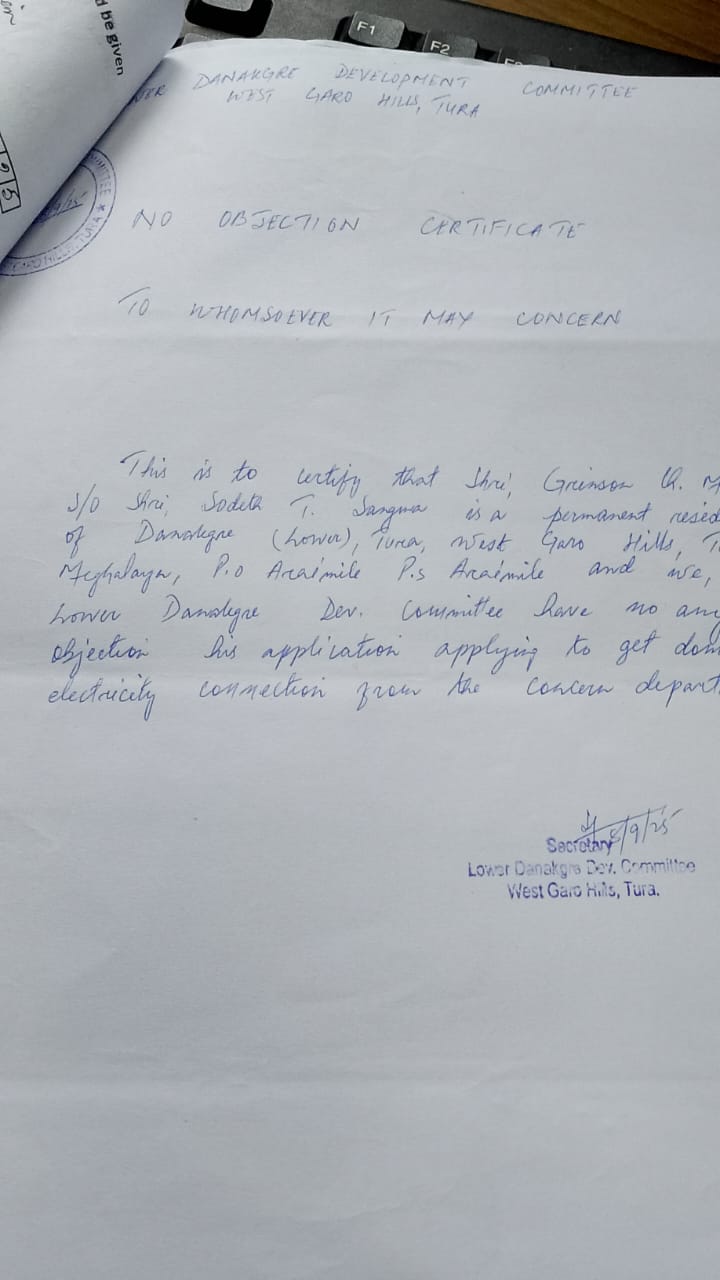 d be given
F1
F2
95
DANAKGRE DEVELOPMENT COMMITTEE
WEST GARO HILLS, TURA
NO OBJECTION CERTIFICATE
TO WHOMSOEVER IT MAY CONCERN
This is to certify that Shri, Grinson
S/O Shri, Sodeth T. Sangma is a permanent resid
of Danakgre (Lower), Tura, West Garo Hills, T
Meghalaya, P.O Araimile P.s Araimile and we,
Lower Danakgre Dev. Committee have no any
objection his application applying to get dom
electricity connection from the concern depart
8/9/25
Secretary
Lower Danakgre Dev. Committee
West Garo Hills, Tura.